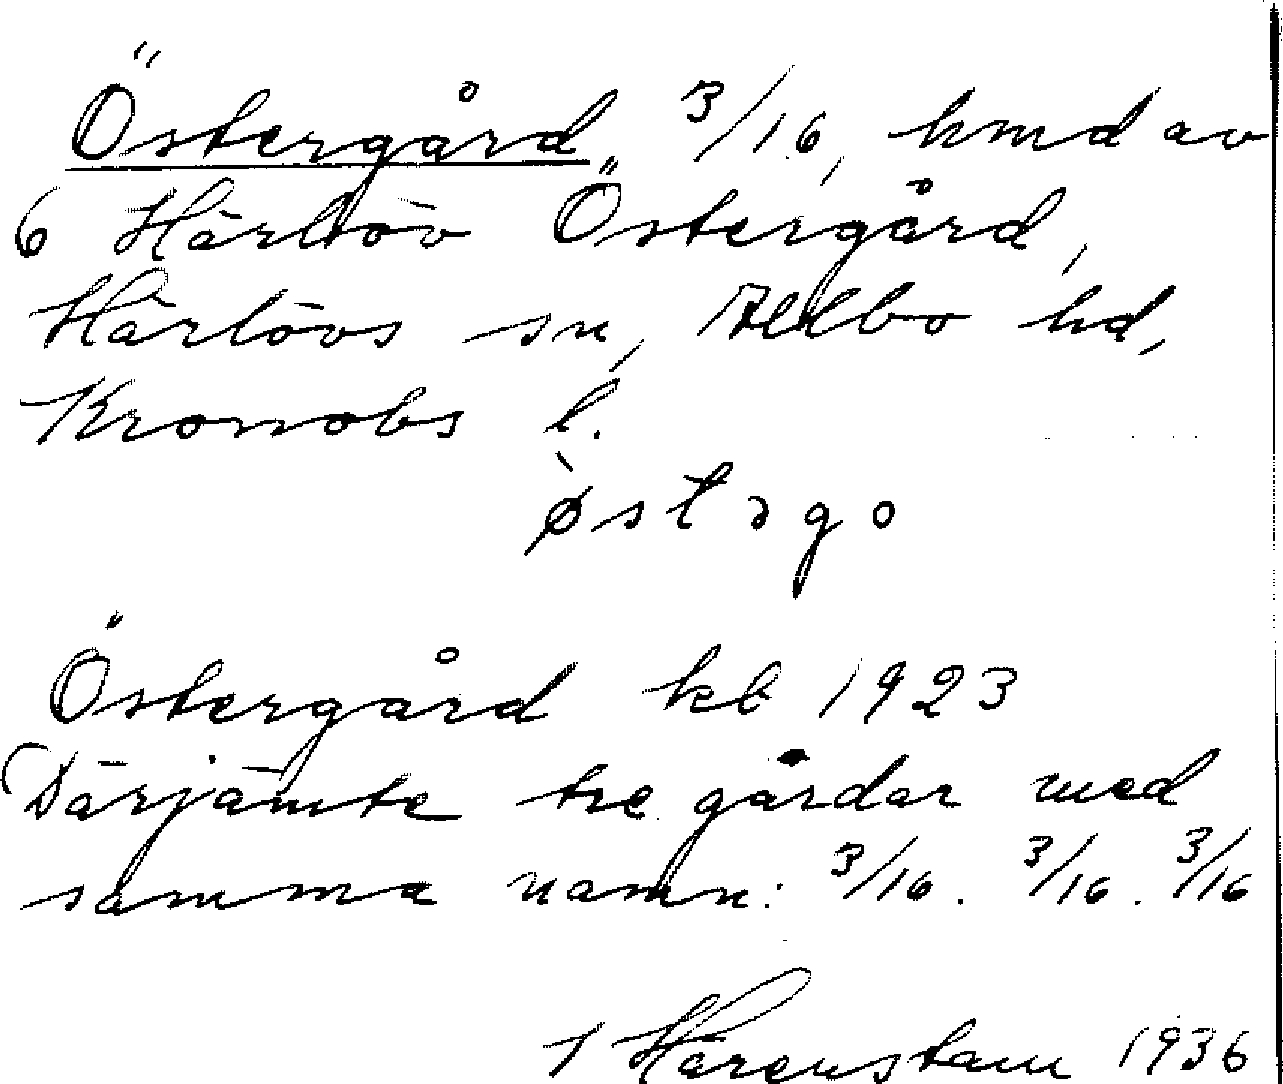 Östergård, 3/16, hmd av
6 Härlöv Östergård,
Härlövs sn, Allbo hd,
Kronobs l.
ø̀stəgo
Östergård kb 1923
(Därjämte tre gårdar med
samma namn: 3/16. 3/16. 3/16
Härenstam 1936